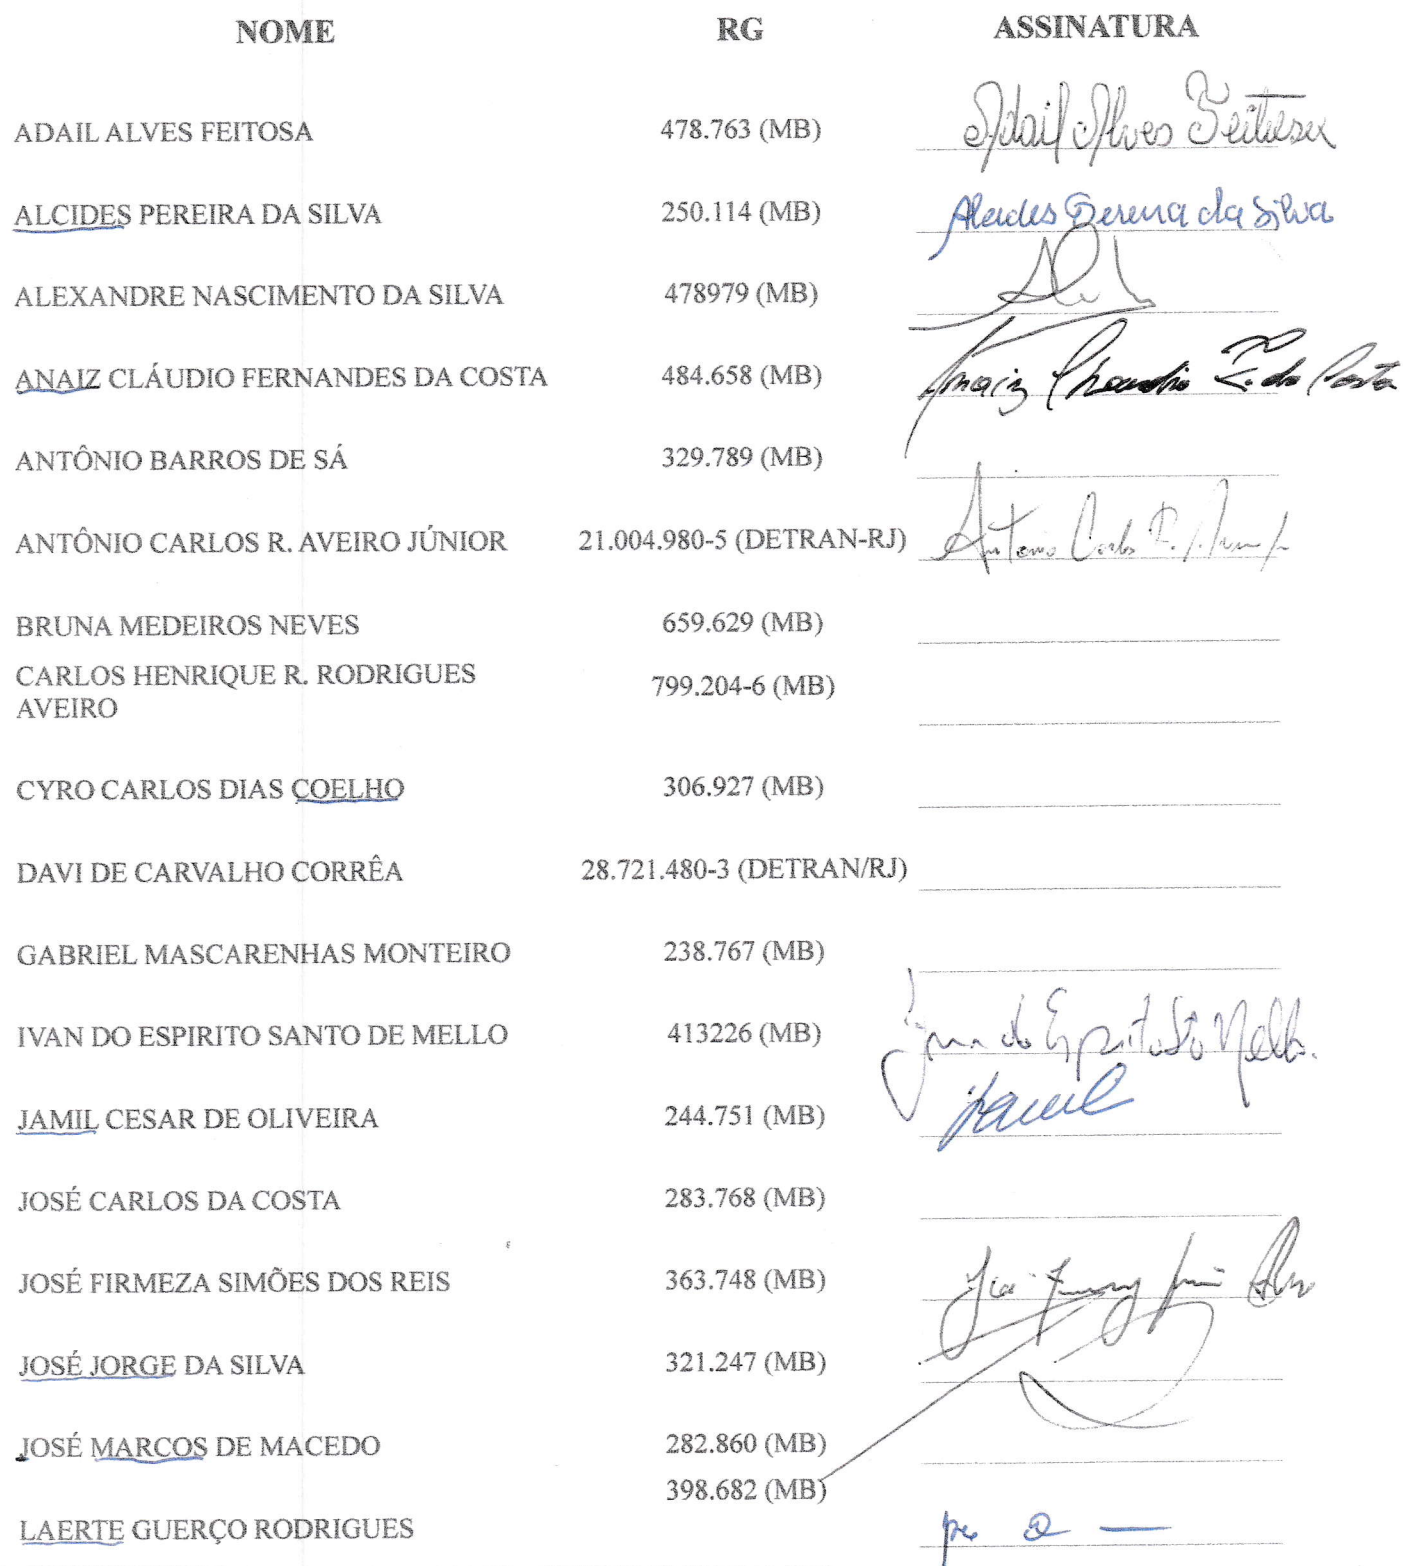 NOME RG ASSINATURA
ADAIL ALVES FEITOSA 478.763 (MB) Adail Alves Feitosa
ALCIDES PEREIRA DA SILVA 250.114 (MB) Alcides Pereira da Silva
ALEXANDRE NASCIMENTO DA SILVA 478979 (MB)
ANAIZ CLÁUDIO FERNANDES DA COSTA 484.658 (MB) Anaiz Claudio F. da Costa
ANTÔNIO BARROS DE SÁ 329.789 (MB)
ANTÔNIO CARLOS R. AVEIRO JÚNIOR 21.004.980-5 (DETRAN-RJ) Antonio Carlos R.
BRUNA MEDEIROS NEVES 659.629 (MB)
CARLOS HENRIQUE R. RODRIGUES
AVEIRO 799.204-6 (MB)
CYRO CARLOS DIAS COELHO 306.927 (MB)
DAVI DE CARVALHO CORRÊA 28.721.480-3 (DETRAN/RJ)
GABRIEL MASCARENHAS MONTEIRO 238.767 (MB)
IVAN DO ESPIRITO SANTO DE MELLO 413226 (MB) Ivan do Espirito Sto Mello.
JAMIL CESAR DE OLIVEIRA 244.751 (MB) Jamil
JOSÉ CARLOS DA COSTA 283.768 (MB)
JOSÉ FIRMEZA SIMÕES DOS REIS 363.748 (MB) José
JOSÉ JORGE DA SILVA 321.247 (MB)
JOSÉ MARCOS DE MACEDO 282.860 (MB)
398.682 (MB)
LAERTE GUERÇO RODRIGUES